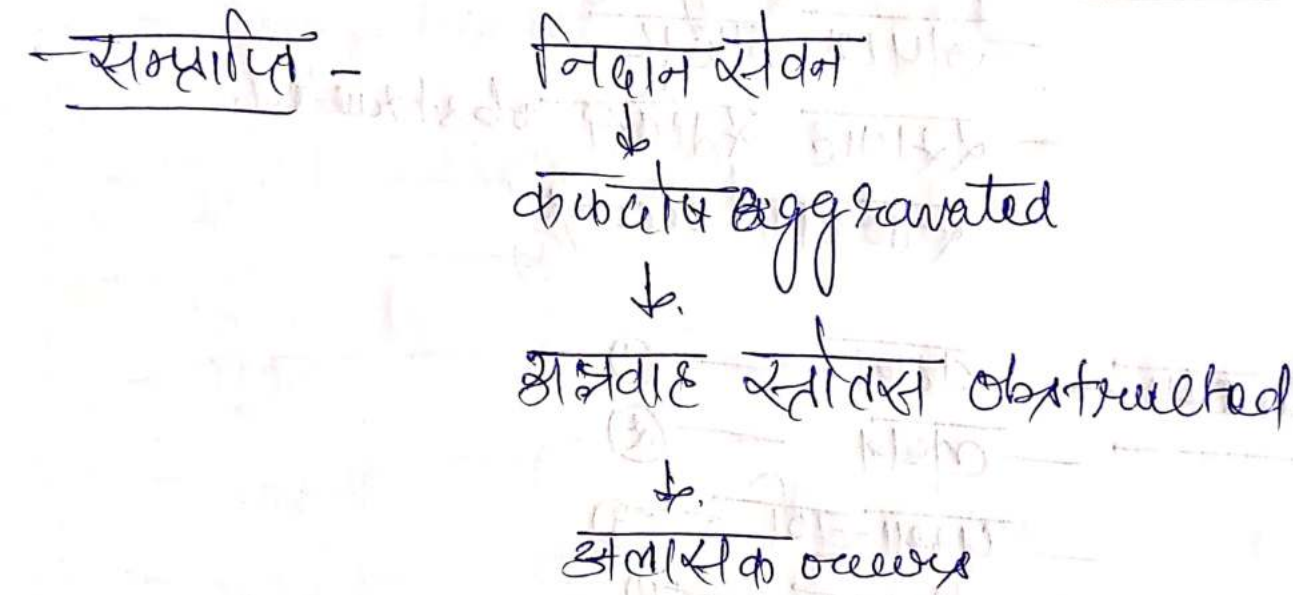 - सम्प्राप्ति - निदान सेवन
↓
कफदोष aggravated
↓
अन्नवाह स्त्रोतस obstructed
↓
अलासक occurs